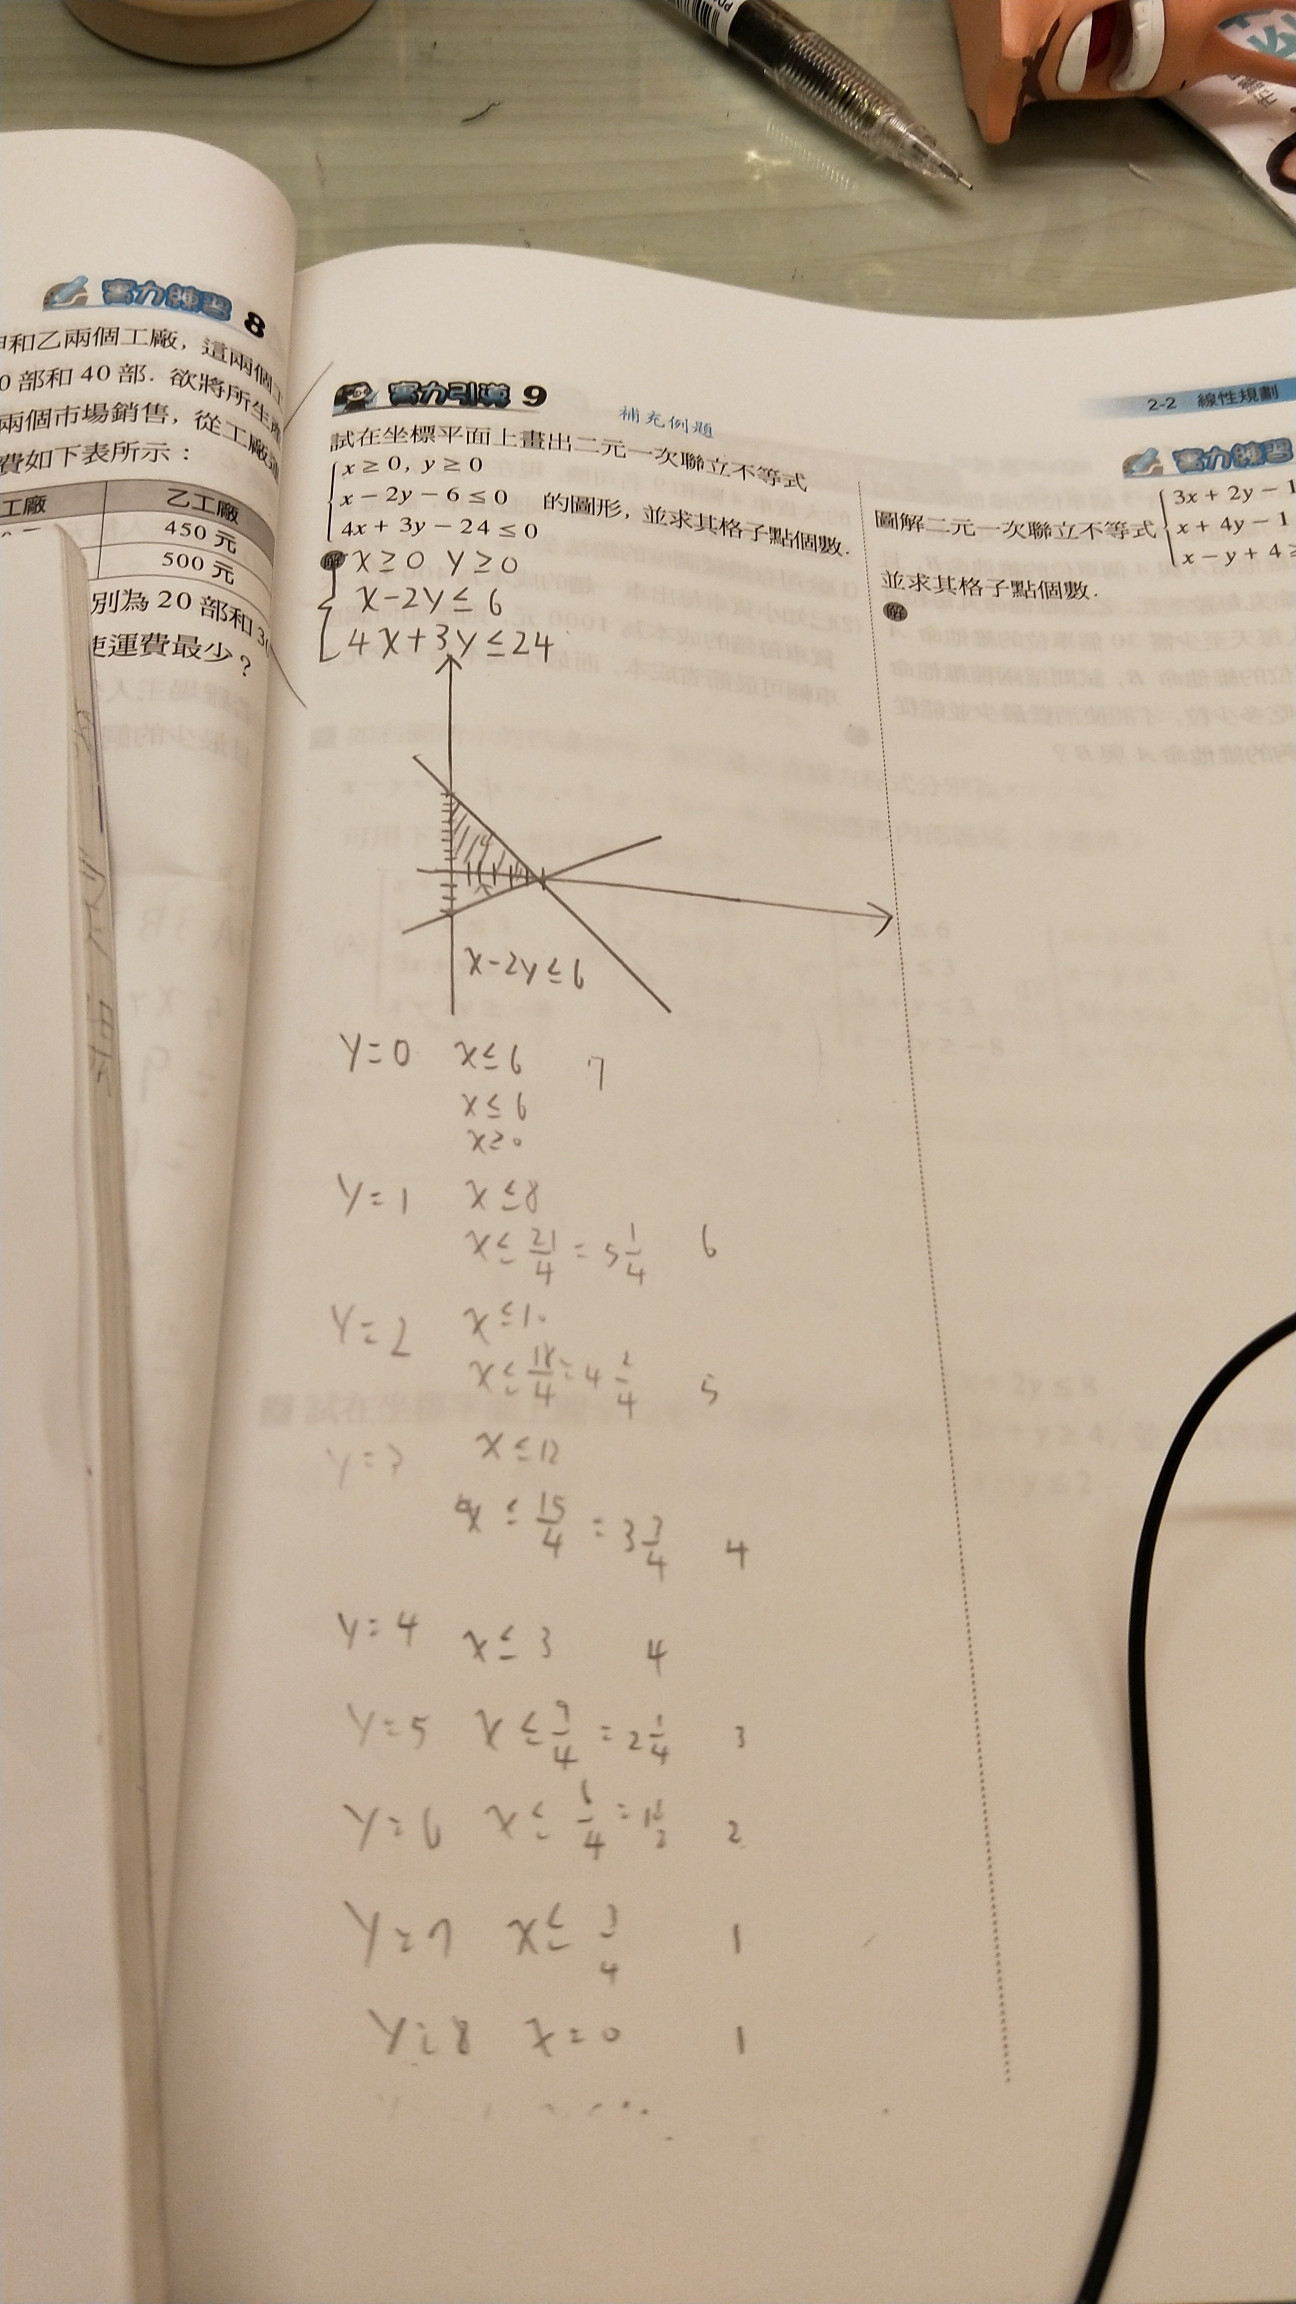 實力練習 8
甲和乙兩個工廠，這兩個工
0 部和 40 部. 欲將所生產
兩個市場銷售，從工廠
費如下表所示：
工廠 乙工廠
450 元
500 元
別為 20 部和 30
使運費最少？
2-2 線性規劃
實力引導 9
補充例題
試在坐標平面上畫出二元一次聯立不等式
x ≥ 0, y ≥ 0
x − 2y − 6 ≤ 0 的圖形，並求其格子點個數.
4x + 3y − 24 ≤ 0
解 x ≥ 0 y ≥ 0
x-2y ≤ 6
4x+3y ≤ 24
x-2y ≤ 6
y=0 x ≤ 6 7
x ≤ 6
x ≥ 0
y=1 x ≤ 8
x ≤ 21/4 = 5 1/4 6
y=2 x ≤ 10
x ≤ 18/4 = 4 2/4 5
y=3 x ≤ 12
x ≤ 15/4 = 3 3/4 4
y=4 x ≤ 3 4
y=5 x ≤ 9/4 = 2 1/4 3
y=6 x ≤ 6/4 = 1 1/2 2
y=7 x ≤ 3/4 1
y=8 x=0 1
實力練習
3x + 2y − 1
圖解二元一次聯立不等式 x + 4y − 1
x − y + 4 ≥
並求其格子點個數.
解